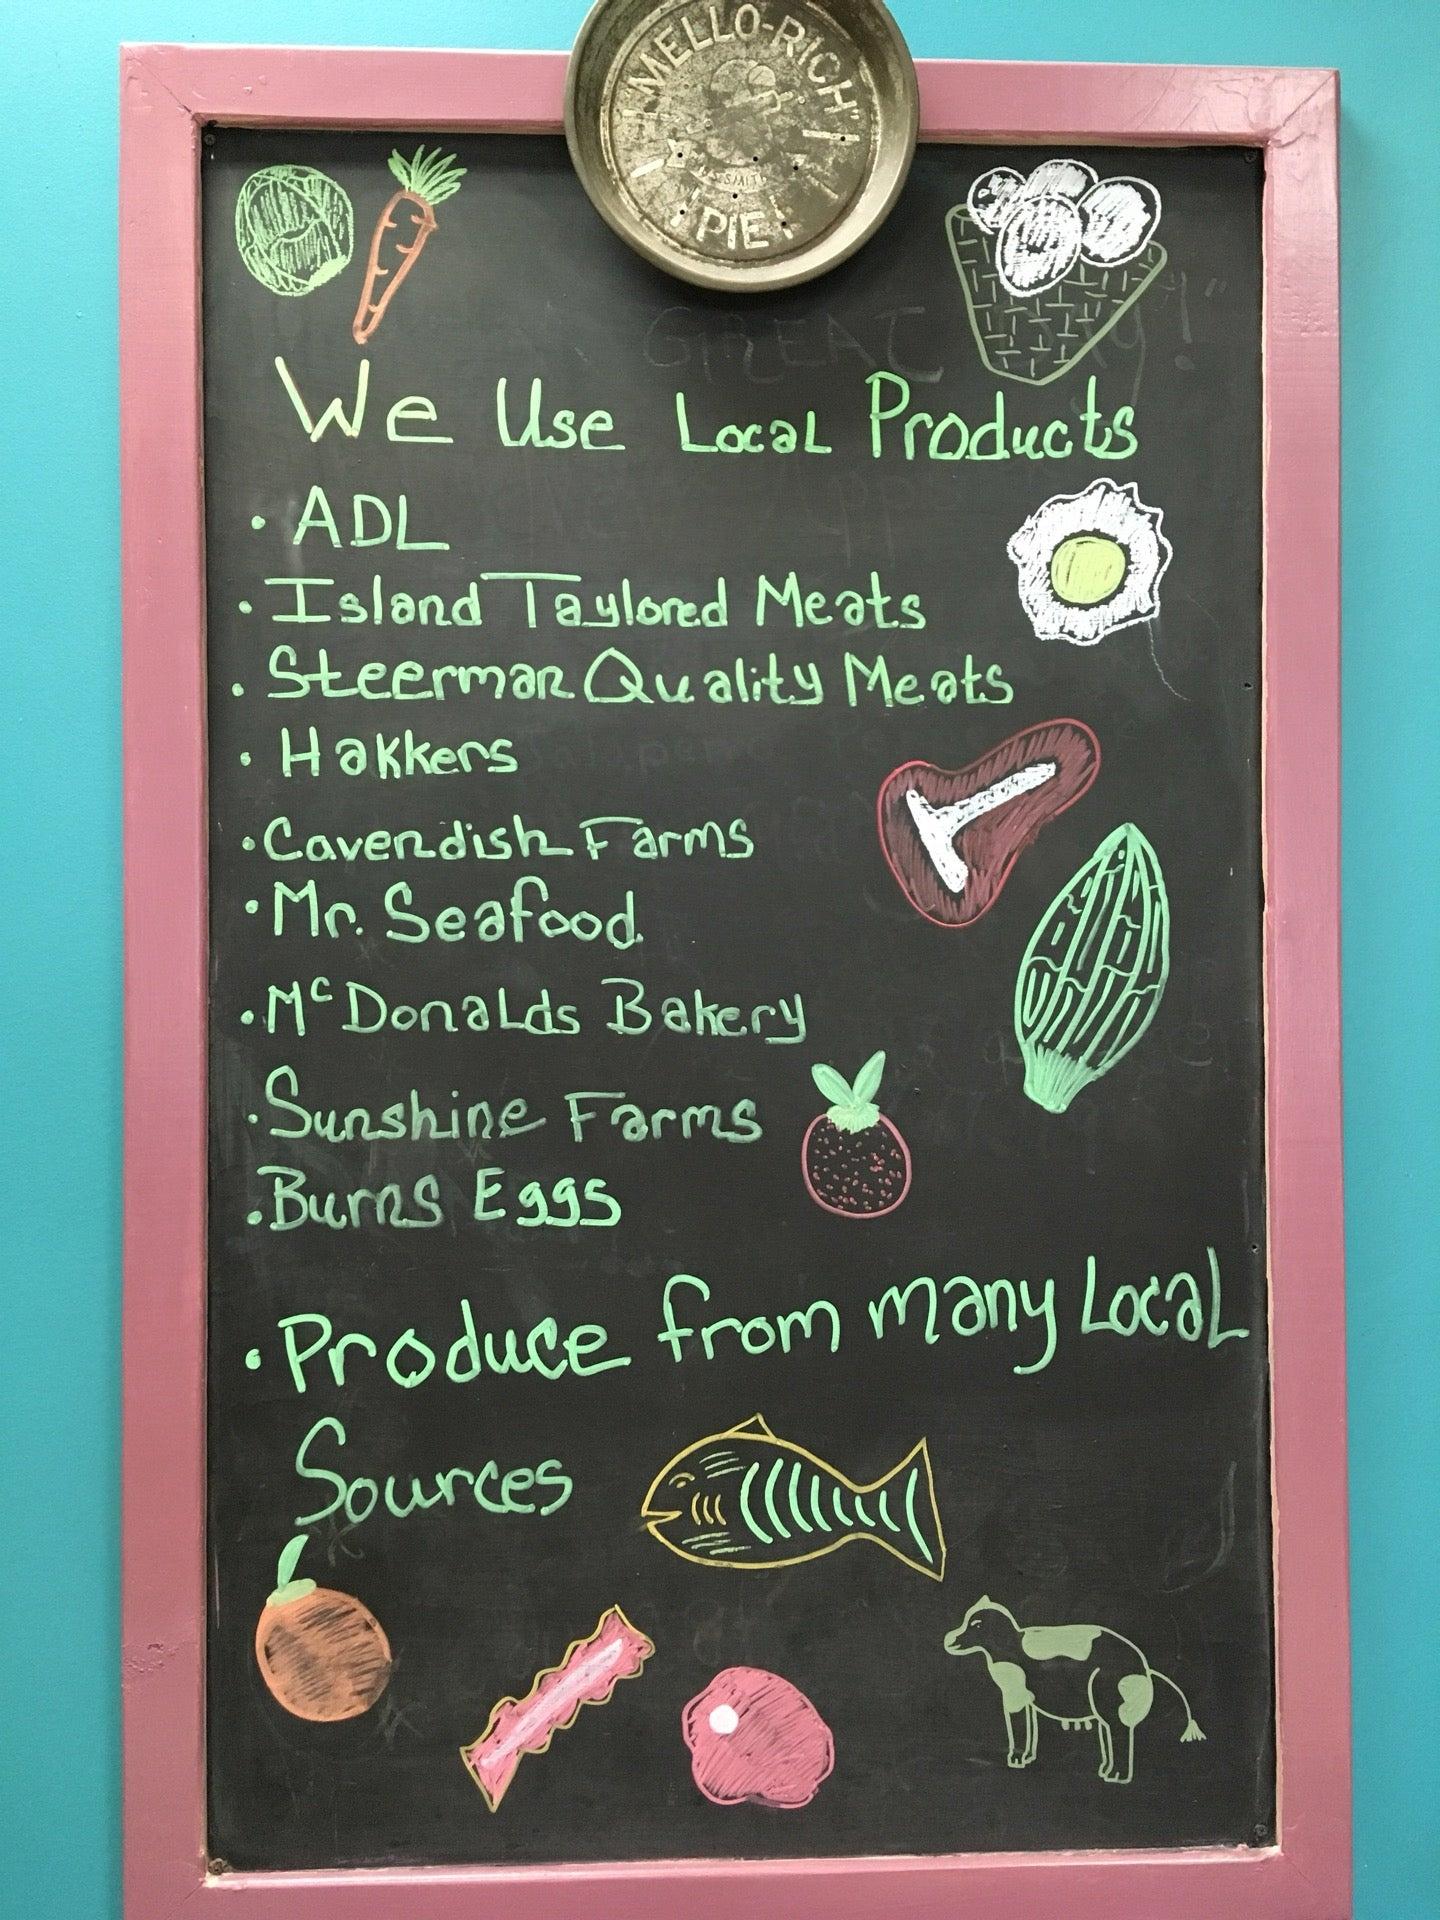 "MELLO-RICH"
PIE
We Use Local Products
· ADL
· Island Taylored Meats
· Steerman Quality Meats
· Hakkers
· Cavendish Farms
· Mr. Seafood
· McDonalds Bakery
· Sunshine Farms
· Burns Eggs
· Produce from many Local
Sources